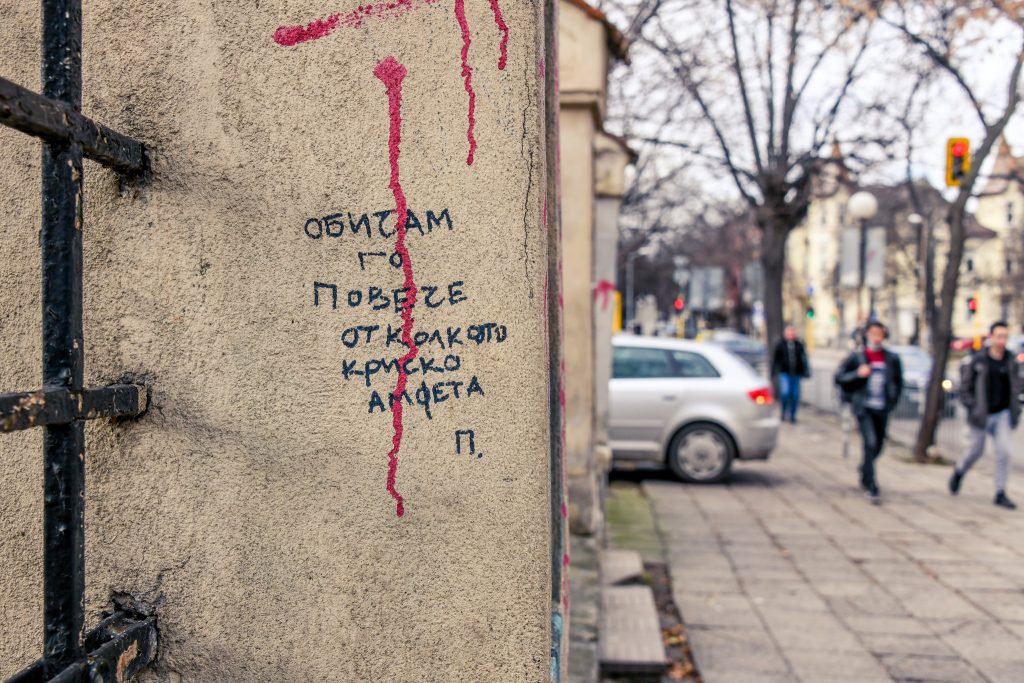 ОБИЧАМ
ГО
ПОВЕЧЕ
ОТКОЛКОТО
КРИСКО
АМФЕТА
П.